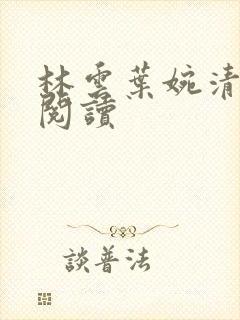 林雲葉婉清
閱讀
談普法